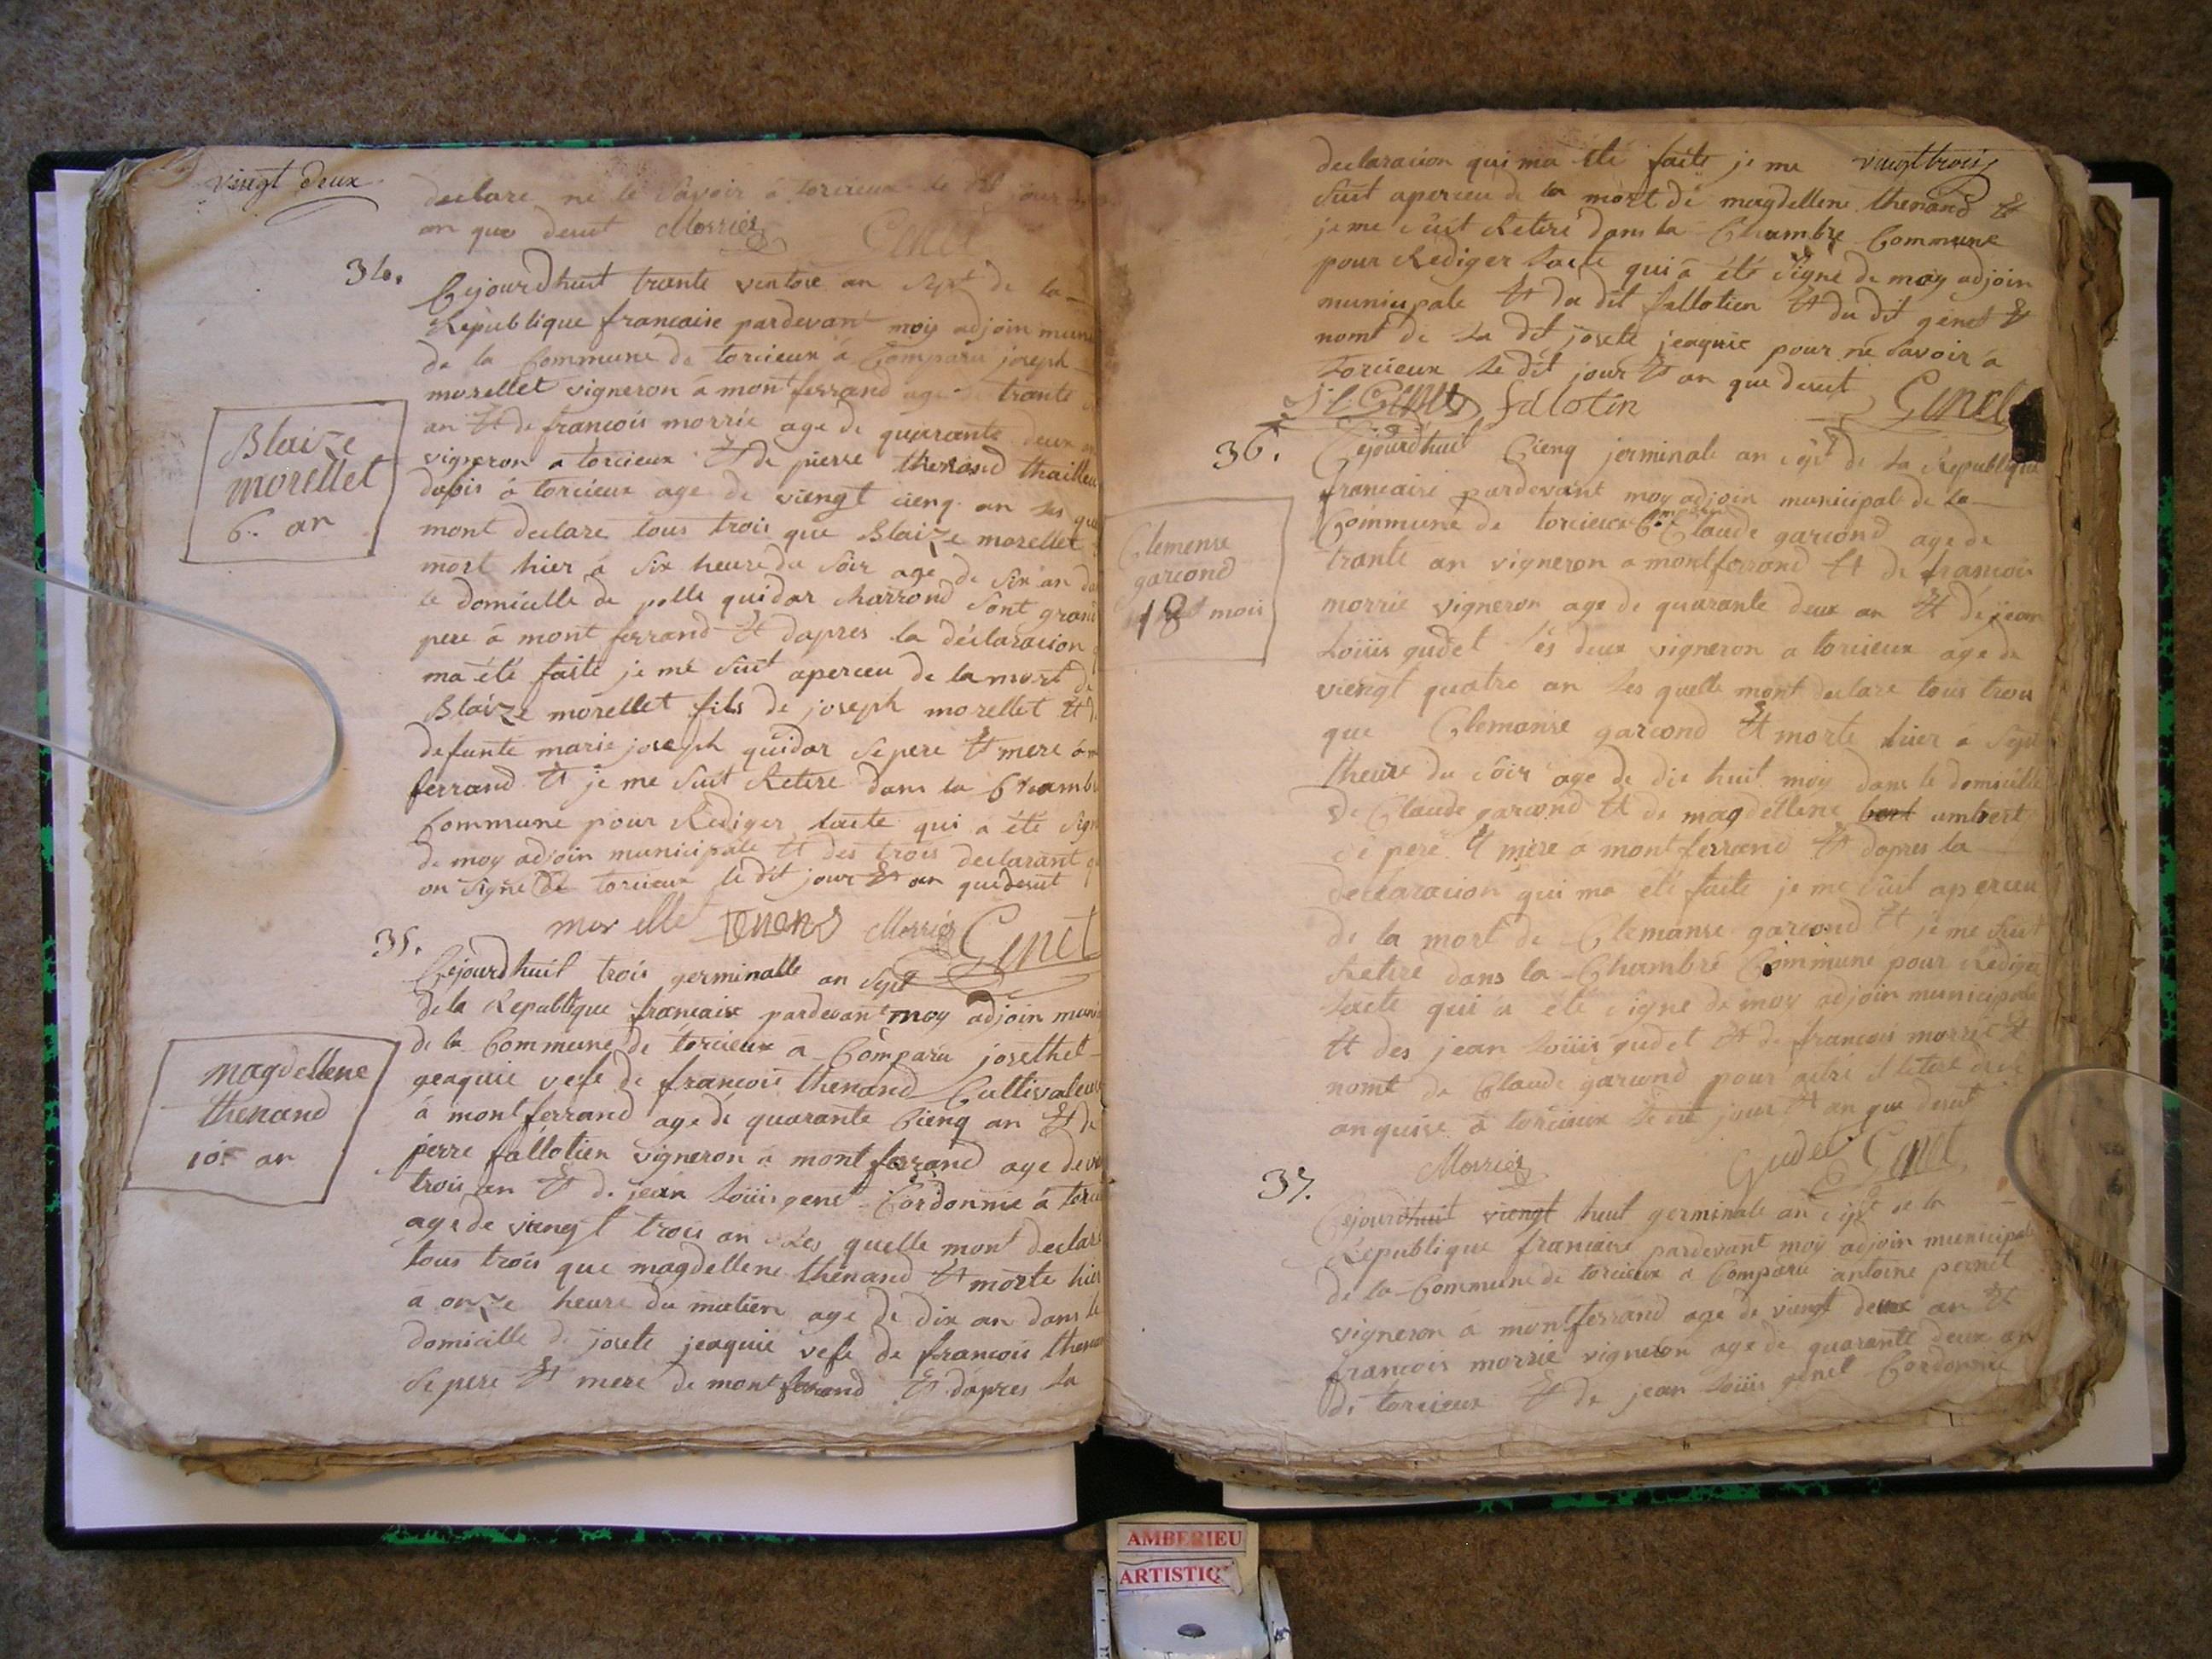 vingt deux
declare ne le Savoir a torcieux le dit jour
an que desut Morrier Genet
34.
Cejourdhuit trante ventose an Sept de la
Republique francaise pardevant moy adjoin muni
de la Commune de torcieux á Comparu joseph
morellet vigneron á mont ferrand age de trante
an Et de francois morrie age de quarante deux
vigneron a torcieux Et de pierre thenand thailleu
dabis á torcieux age de viengt cienq an les que
mont declare tous trois que Blaize morellet
mort hier á Six heure du Soir age de Six an da
le domicille de guidar charrond Sont grand
pere á mont ferrand Et dapres la déclaracion
ma été faite je me Suit aperceu de la mort de
Blaize morellet fils de joseph morellet Et d
defunte marie joseph guidar Se pere Et mere á
ferrand Et je me Suit Retere dans la Chambr
Commune pour Rediger lacte qui a été Sign
de moy adjoin municipale Et des trois declarant
on Signe torcieux le dit jour Et an que desut
Blaize
morellet
6. an
mor ellet tenand Morrier Genet
35.
Cejourdhuit trois germinalle an Sept
de la Republique francaise pardevant moy adjoin muni
de la Commune de torcieux a Comparu josethet
geaquie vefe de francois thenand Cultivateur
á mont ferrand age de quarante Cienq an Et de
pierre fallotien vigneron á mont ferrand age de
trois an Et de jean Loüis genet Cordonnie á torci
age de viengt trois an Les quelle mont declare
tous trois que magdellene thenand Et morte hier
a onze heure du matien age de dix an dans le
domicille de josete jeaquie vefe de francois thenan
Se pere Et mere de mont ferrand Et dapres la
magdellene
thenand
10 an
vingt trois
declaracion qui ma été faite je me
Suit aperceu de la mort de magdellene thenand Et
je me Suit Retere dans la Chambre Commune
pour Rediger lacte qui á été Signe de moy adjoin
municipale Et du dit fallotien Et du dit genet Et
nomt de La dit josete jeaquie pour ne Savoir á
torcieux Le dit jour Et an que desut
j. l. Genet falotin Genet
36.
Cejourdhuit Cienq jerminale an Sept de La Republique
francaise pardevant moy adjoin municipale de la
Commune de torcieux Claude garcond age de
trante an vigneron a montferrand Et de francois
morrie vigneron age de quarante deux an Et de jean
Loüis gudet Les deux vigneron a torcieux age de
viengt quatre an Les quelle mont declare tous trois
que Clemanse garcond Et morte hier a Sept
theure du Soir age de dix huit moy dans le domicille
de Claude garcond Et de magdellene bert umbert
Se pere Et mere á mont ferrand Et dapres la
declaracion qui ma été faite je me Suit aperceu
de la mort de Clemanse garcond Et je me Suit
Retere dans la Chambre Commune pour Rediger
lacte qui á été Signe de moy adjoin municipale
Et des jean Loüis gudet Et de francois morrie Et
nomt de Claude garcond pour
anquise á torcieux le dit jour Et an que desut
Clemense
garcond
18 mois
Morrier Gudet Genet
37.
Cejourdhuit viengt huit germinale an Sept de la
Republique francaise pardevant moy adjoin municipale
de la Commune de torcieux a Comparu antoine pernet
vigneron á montferrand age de viengt deux an Et
francois morrie vigneron age de quarante deux an
de torcieux Et de jean Loüis genet Cordonnie
AMBERIEU
ARTISTIQ